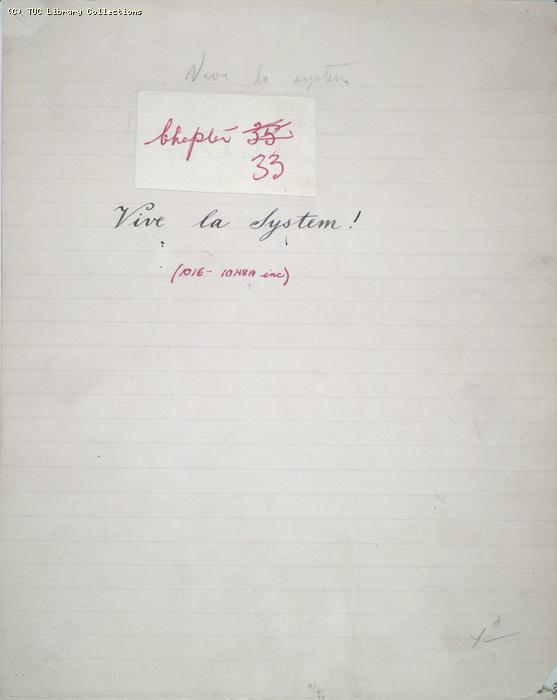 (C) TUC Library Collections
Vive la system
Chapter 35
33
Vive la System!
(1016 - 1048A inc)